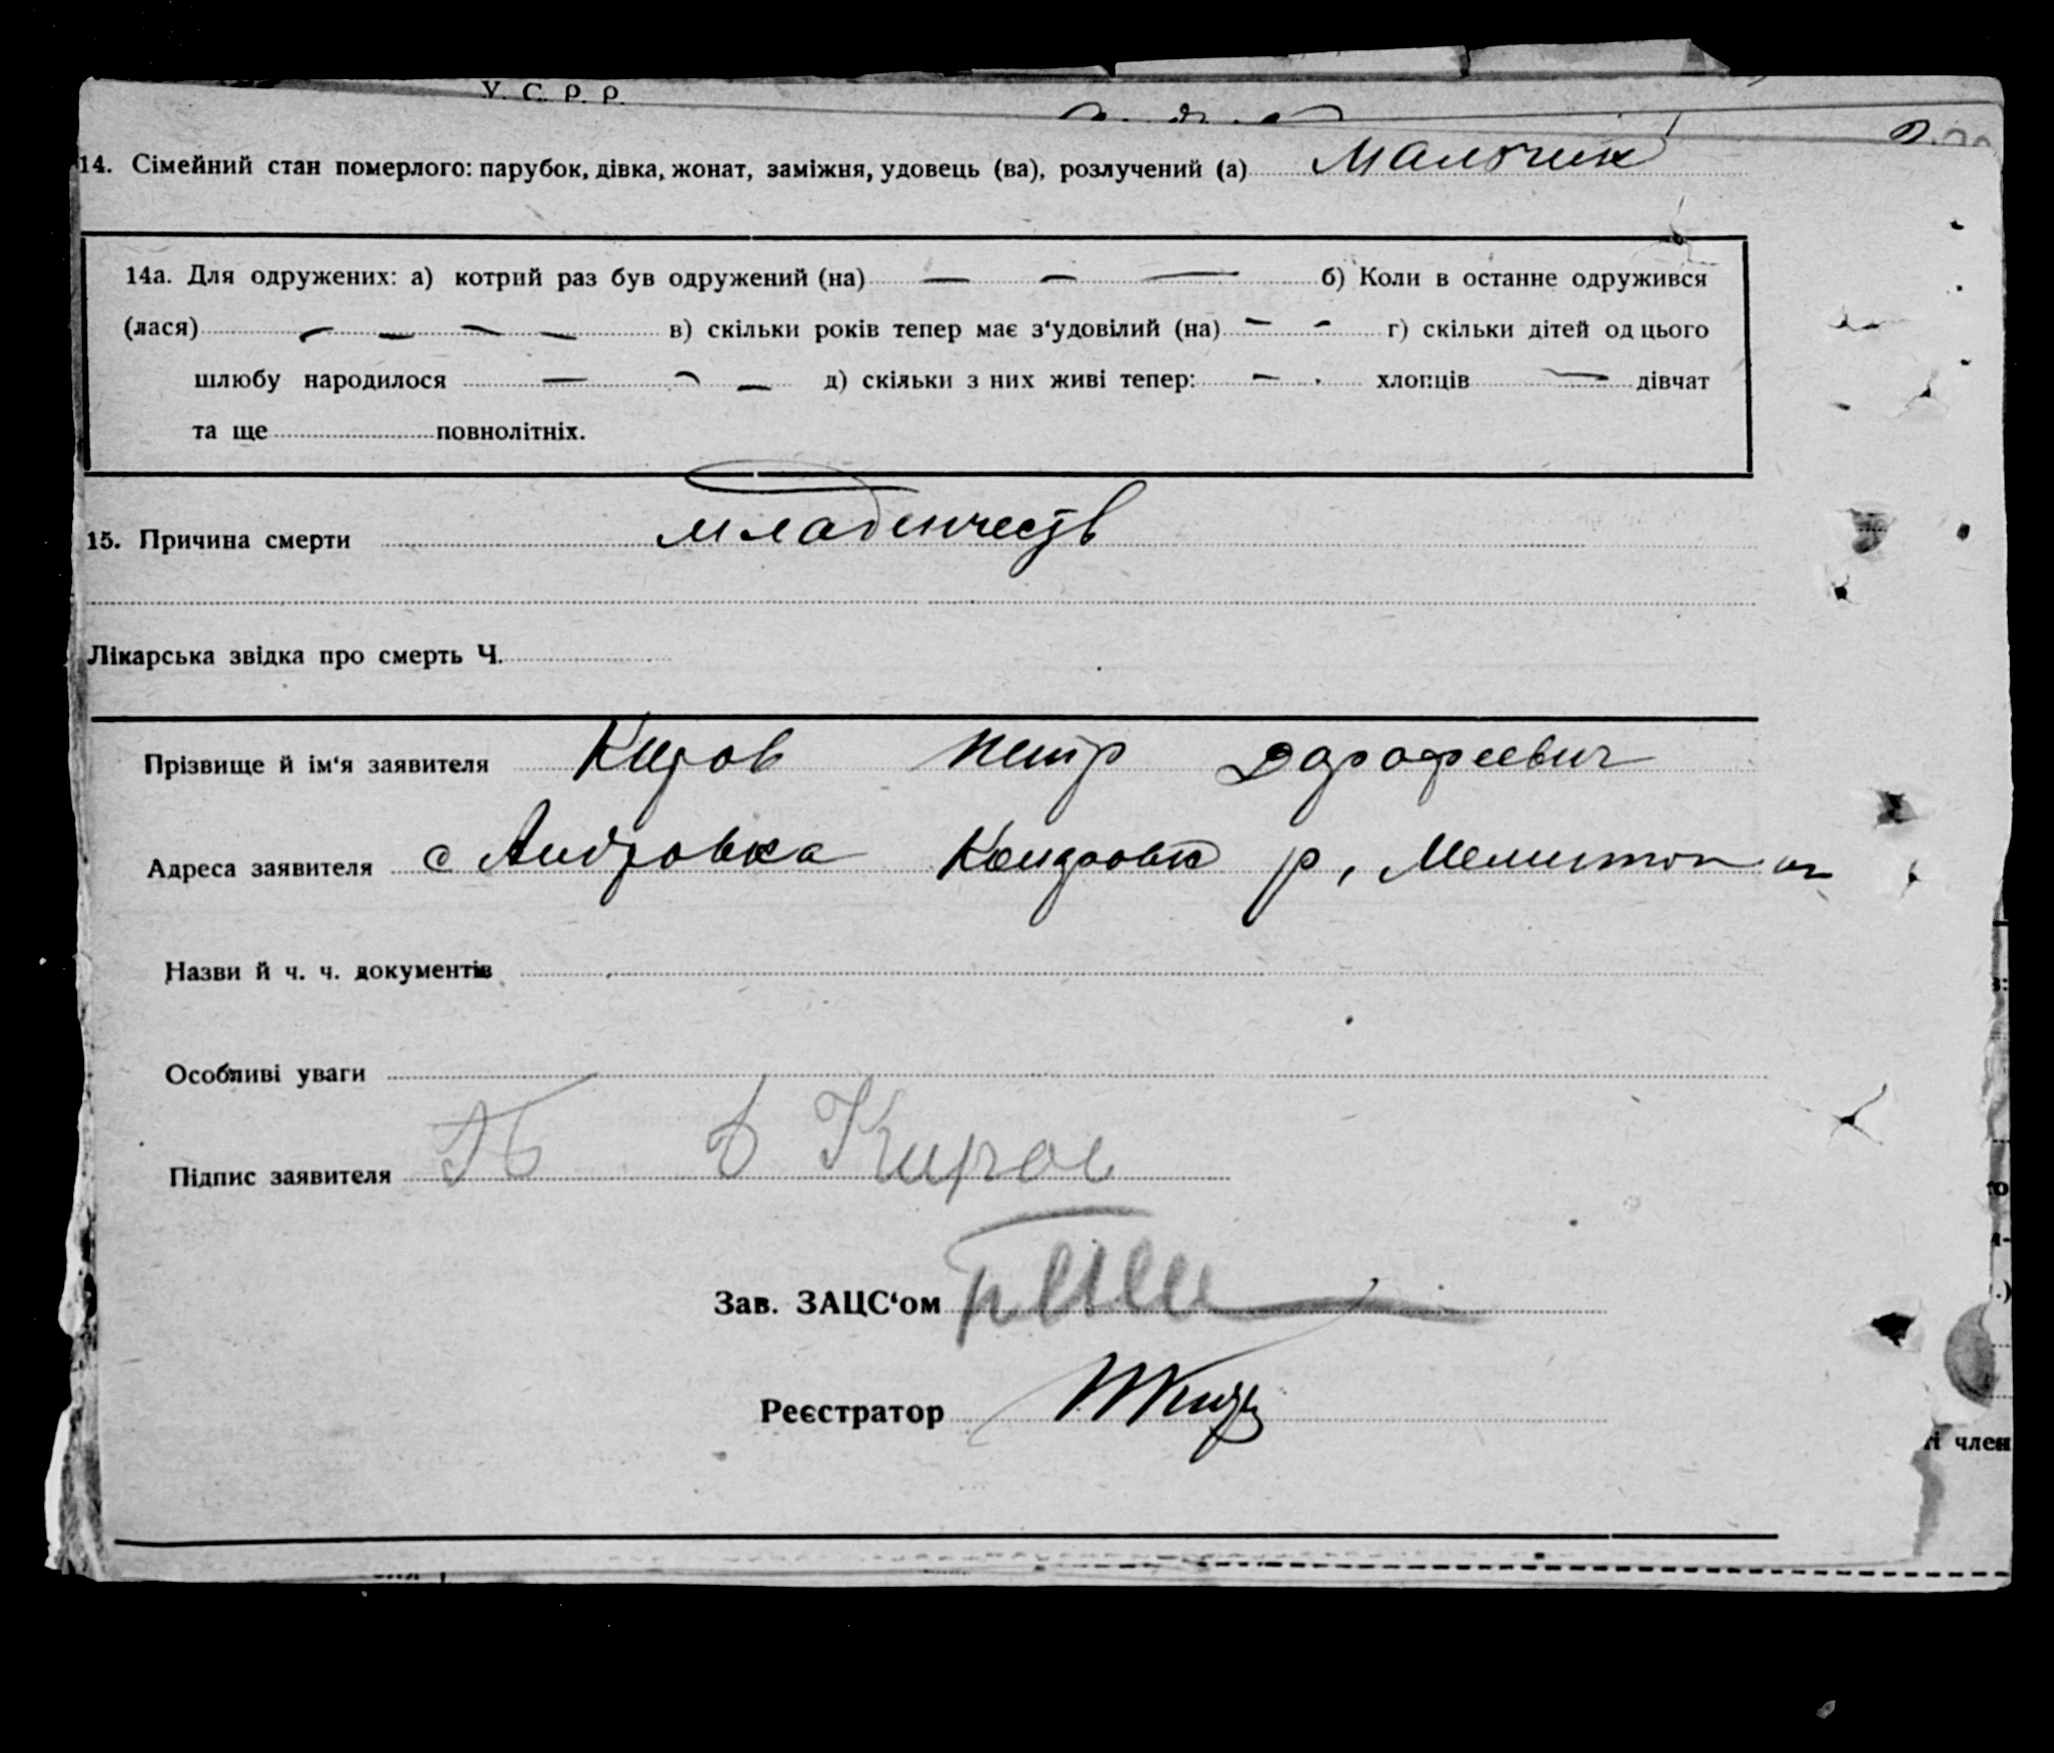 У. С. Р. Р.
14. Сімейний стан померлого: парубок, дівка, жонат, заміжня, удовець (ва), розлучений (а) Мальчик
14а. Для одружених: а) котрий раз був одружений (на) — — — б) Коли в останнє одружився
(лася) — — — — в) скільки років тепер має з‘удовілий (на) — — г) скільки дітей од цього
шлюбу народилося — — — д) скільки з них живі тепер: — хлопців — дівчат
та ще повнолітніх.
15. Причина смерти младенчеств
Лікарська звідка про смерть Ч.
Прізвище й ім‘я заявителя Киров Петр Дорофеевич
Адреса заявителя с Андровка р, Мелитоп
Назви й ч. ч. документів
Особливі уваги
Підпис заявителя Киров
Зав. ЗАЦС‘ом
Реєстратор
і член